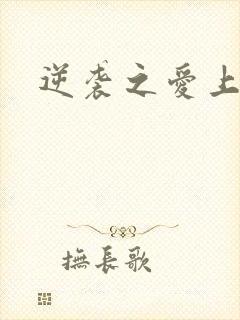 逆袭之愛上
撫長歌